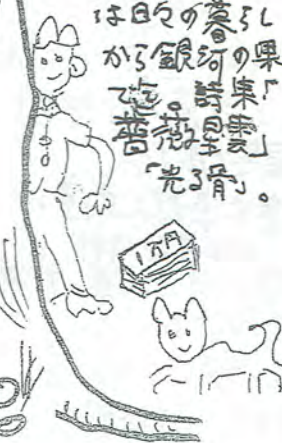 は日々の暮らし
から銀河の果
て迄。詩集「
薔薇星雲」
「光る骨」。
1万円